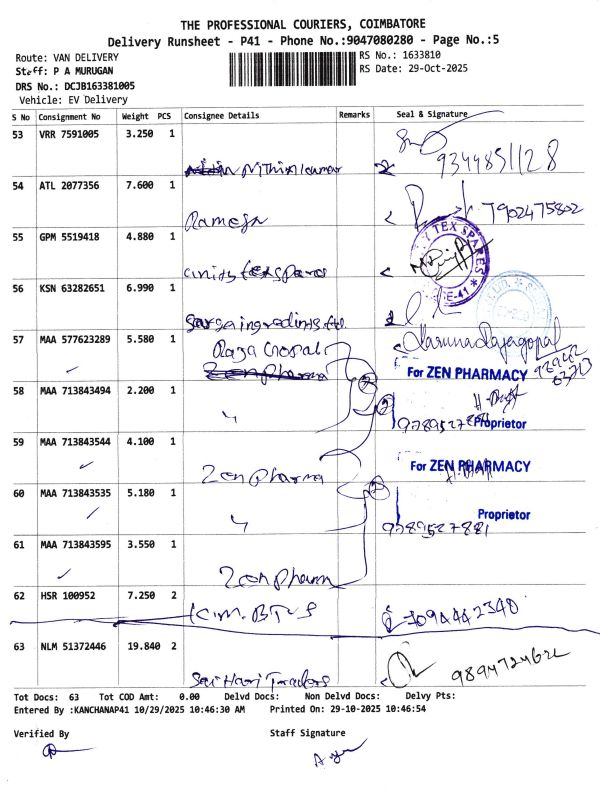 THE PROFESSIONAL COURIERS, COIMBATORE
Delivery Runsheet - P41 - Phone No.:9047080280 - Page No.:5
Route: VAN DELIVERY
RS No.: 1633810
Staff: P A MURUGAN
RS Date: 29-Oct-2025
DRS No.: DCJB163381005
Vehicle: EV Delivery
S No Consignment No Weight PCS Consignee Details Remarks Seal & Signature
53 VRR 7591005 3.250 1
Nithin kumar 9344851128
54 ATL 2077356 7.600 1
Ramesh 7902475802
55 GPM 5519418 4.880 1
unity tex spares
TEX SPARES
E-41
56 KSN 63282651 6.990 1
57 MAA 577623289 5.580 1
Raja Gopal
Zen pharma
For ZEN PHARMACY
58 MAA 713843494 2.200 1
Proprietor
59 MAA 713843544 4.100 1
Zen pharma
For ZEN PHARMACY
60 MAA 713843535 5.180 1
Proprietor
9789527881
61 MAA 713843595 3.550 1
Zen pharma
62 HSR 100952 7.250 2
63 NLM 51372446 19.840 2
Sai Hari Traders
Tot Docs: 63 Tot COD Amt: 0.00 Delvd Docs: Non Delvd Docs: Delvy Pts:
Entered By :KANCHANAP41 10/29/2025 10:46:30 AM Printed On: 29-10-2025 10:46:54
Verified By Staff Signature